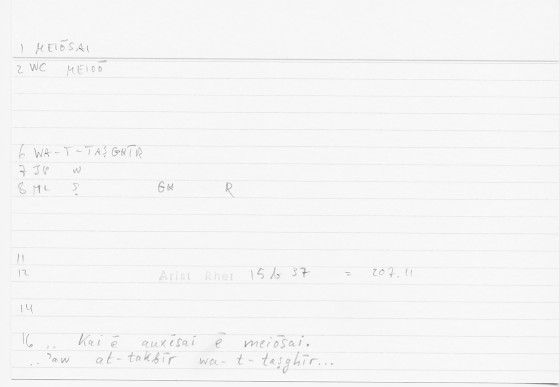 1 MEIŌSAI
2 WC MEIOŌ
6 WA-T-TAṢGHĪR
7 JV W
8 ML Ṣ GH R
11
12 Arist Rhet 15b 37 = 207.11
14
16 .. Kai ē auxēsai ē meiōsai.
.. ʾaw at-takbīr wa-t-taṣghīr...